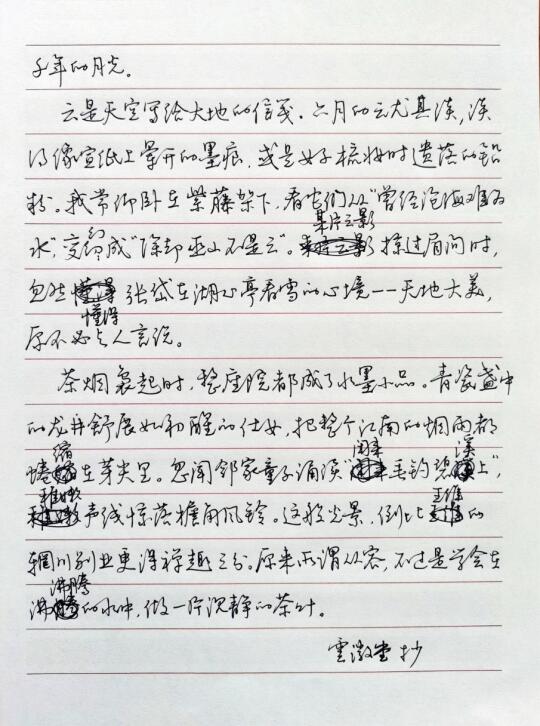 千年的月光。
云是天空写给大地的信笺。六月的云尤其淡,淡
得像宣纸上晕开的墨痕,或是女子梳妆时遗落的铅
粉。我常仰卧在紫藤架下,看它们从“曾经沧海难为
水”变幻成“除却巫山不是云”。某片云影掠过眉间时,
忽然懂得张岱在湖心亭看雪的心境——天地大美,
原不必与人言说。
茶烟袅起时,整座院都成了水墨小品。青瓷盏中
的龙井舒展如初醒的仕女,把整个江南的烟雨都
蜷缩在芽尖里。忽闻邻家童子诵读“闲来垂钓碧溪上”,
稚嫩声线惊落檐角风铃。这般光景,倒比王维的
辋川别业更得禅趣三分。原来所谓从容,不过是学会在
沸腾的水中,做一片沉静的茶叶。
雲澂堂 抄